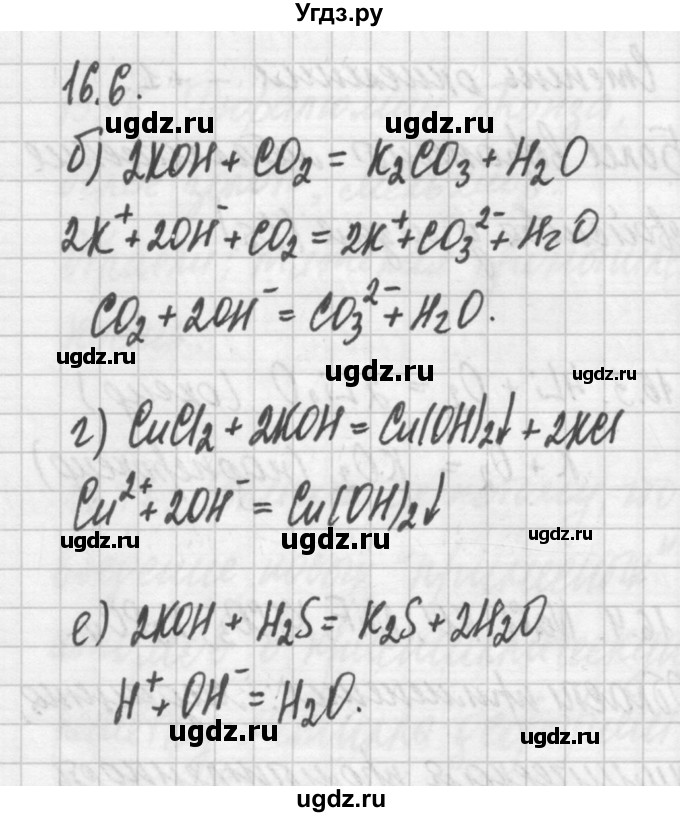 Угдз.ру
16.6.
ugdz.ru ugdz.ru
б) 2KOH + CO₂ = K₂CO₃ + H₂O
2K⁺ + 2OH⁻ + CO₂ = 2K⁺ + CO₃²⁻ + H₂O
CO₂ + 2OH⁻ = CO₃²⁻ + H₂O.
ugdz.ru ugdz.ru ugdz.ru
г) CuCl₂ + 2KOH = Cu(OH)₂↓ + 2KCl
Cu²⁺ + 2OH⁻ = Cu(OH)₂↓
ugdz.ru ugdz.ru ugdz.ru
е) 2KOH + H₂S = K₂S + 2H₂O
H⁺ + OH⁻ = H₂O.
ugdz.ru ugdz.ru
ugdz.ru